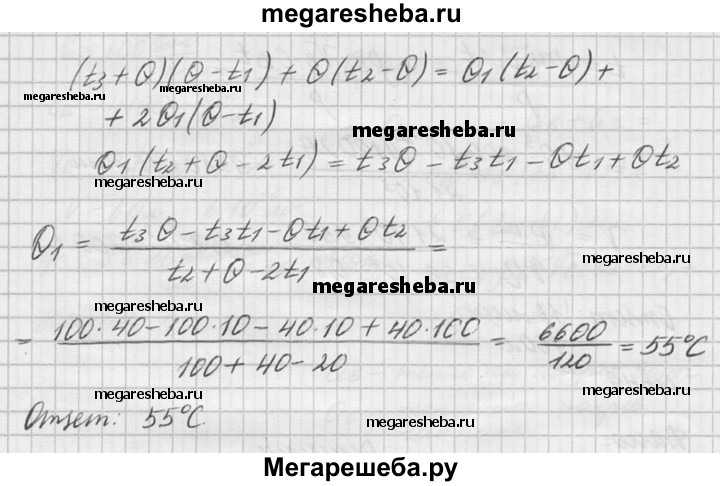 megaresheba.ru
(t3 + θ)(θ - t1) + θ(t2 - θ) = θ1(t2 - θ) +
megaresheba.ru megaresheba.ru
+ 2θ1(θ - t1)
megaresheba.ru
θ1(t2 + θ - 2t1) = t3θ - t3t1 - θt1 + θt2
megaresheba.ru
θ1 = (t3θ - t3t1 - θt1 + θt2) / (t2 + θ - 2t1) =
megaresheba.ru
megaresheba.ru
megaresheba.ru
= (100·40 - 100·10 - 40·10 + 40·100) / (100 + 40 - 20) = 6600 / 120 = 55°C
megaresheba.ru
megaresheba.ru
Ответ: 55°C.
megaresheba.ru
Мегарешеба.ру